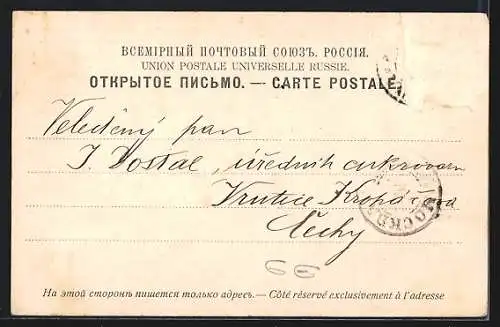 ВСЕМІРНЫЙ ПОЧТОВЫЙ СОЮЗЪ. РОССІЯ.
UNION POSTALE UNIVERSELLE RUSSIE.
ОТКРЫТОЕ ПИСЬМО. — CARTE POSTALE.
Velectěný pan
J. Dostal, úředník cukrovaru
Vrutice Kropáčova
Čechy
МОСКВА
На этой сторонѣ пишется только адресъ. — Côté réservé exclusivement à l'adresse